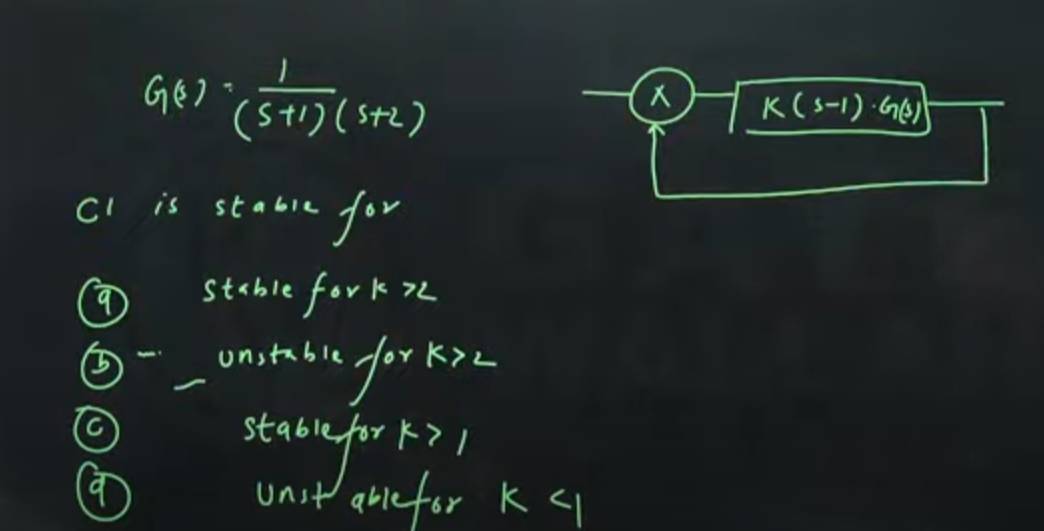 G(s) = 1 / (s+1)(s+2)
X
K(s-1).G(s)
Cl is stable for
a stable for K >2
b unstable for K>2
c stable for K > 1
d unstable for K <1